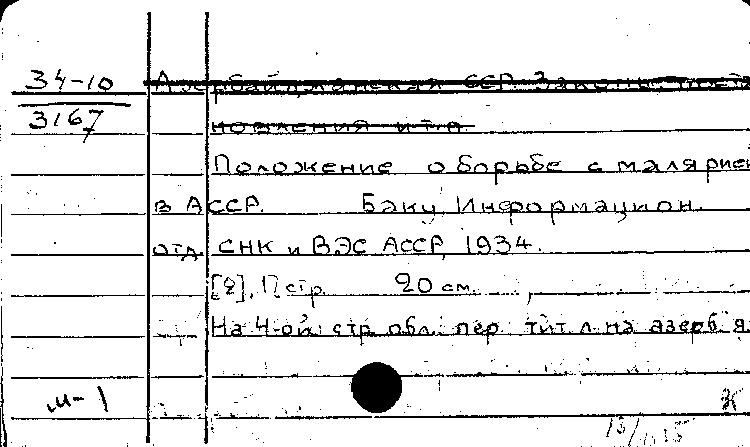 34-10
3167
Азербайджанская ССР. Законы, поста
новления и т.п.
Положение о борьбе с малярией
в АССР. Баку, Информацион.
отд. СНК и ВЭС АССР, 1934.
стр. 20 см.
На 4-ой стр. обл. пер. тит. л. на азерб. я
м-1